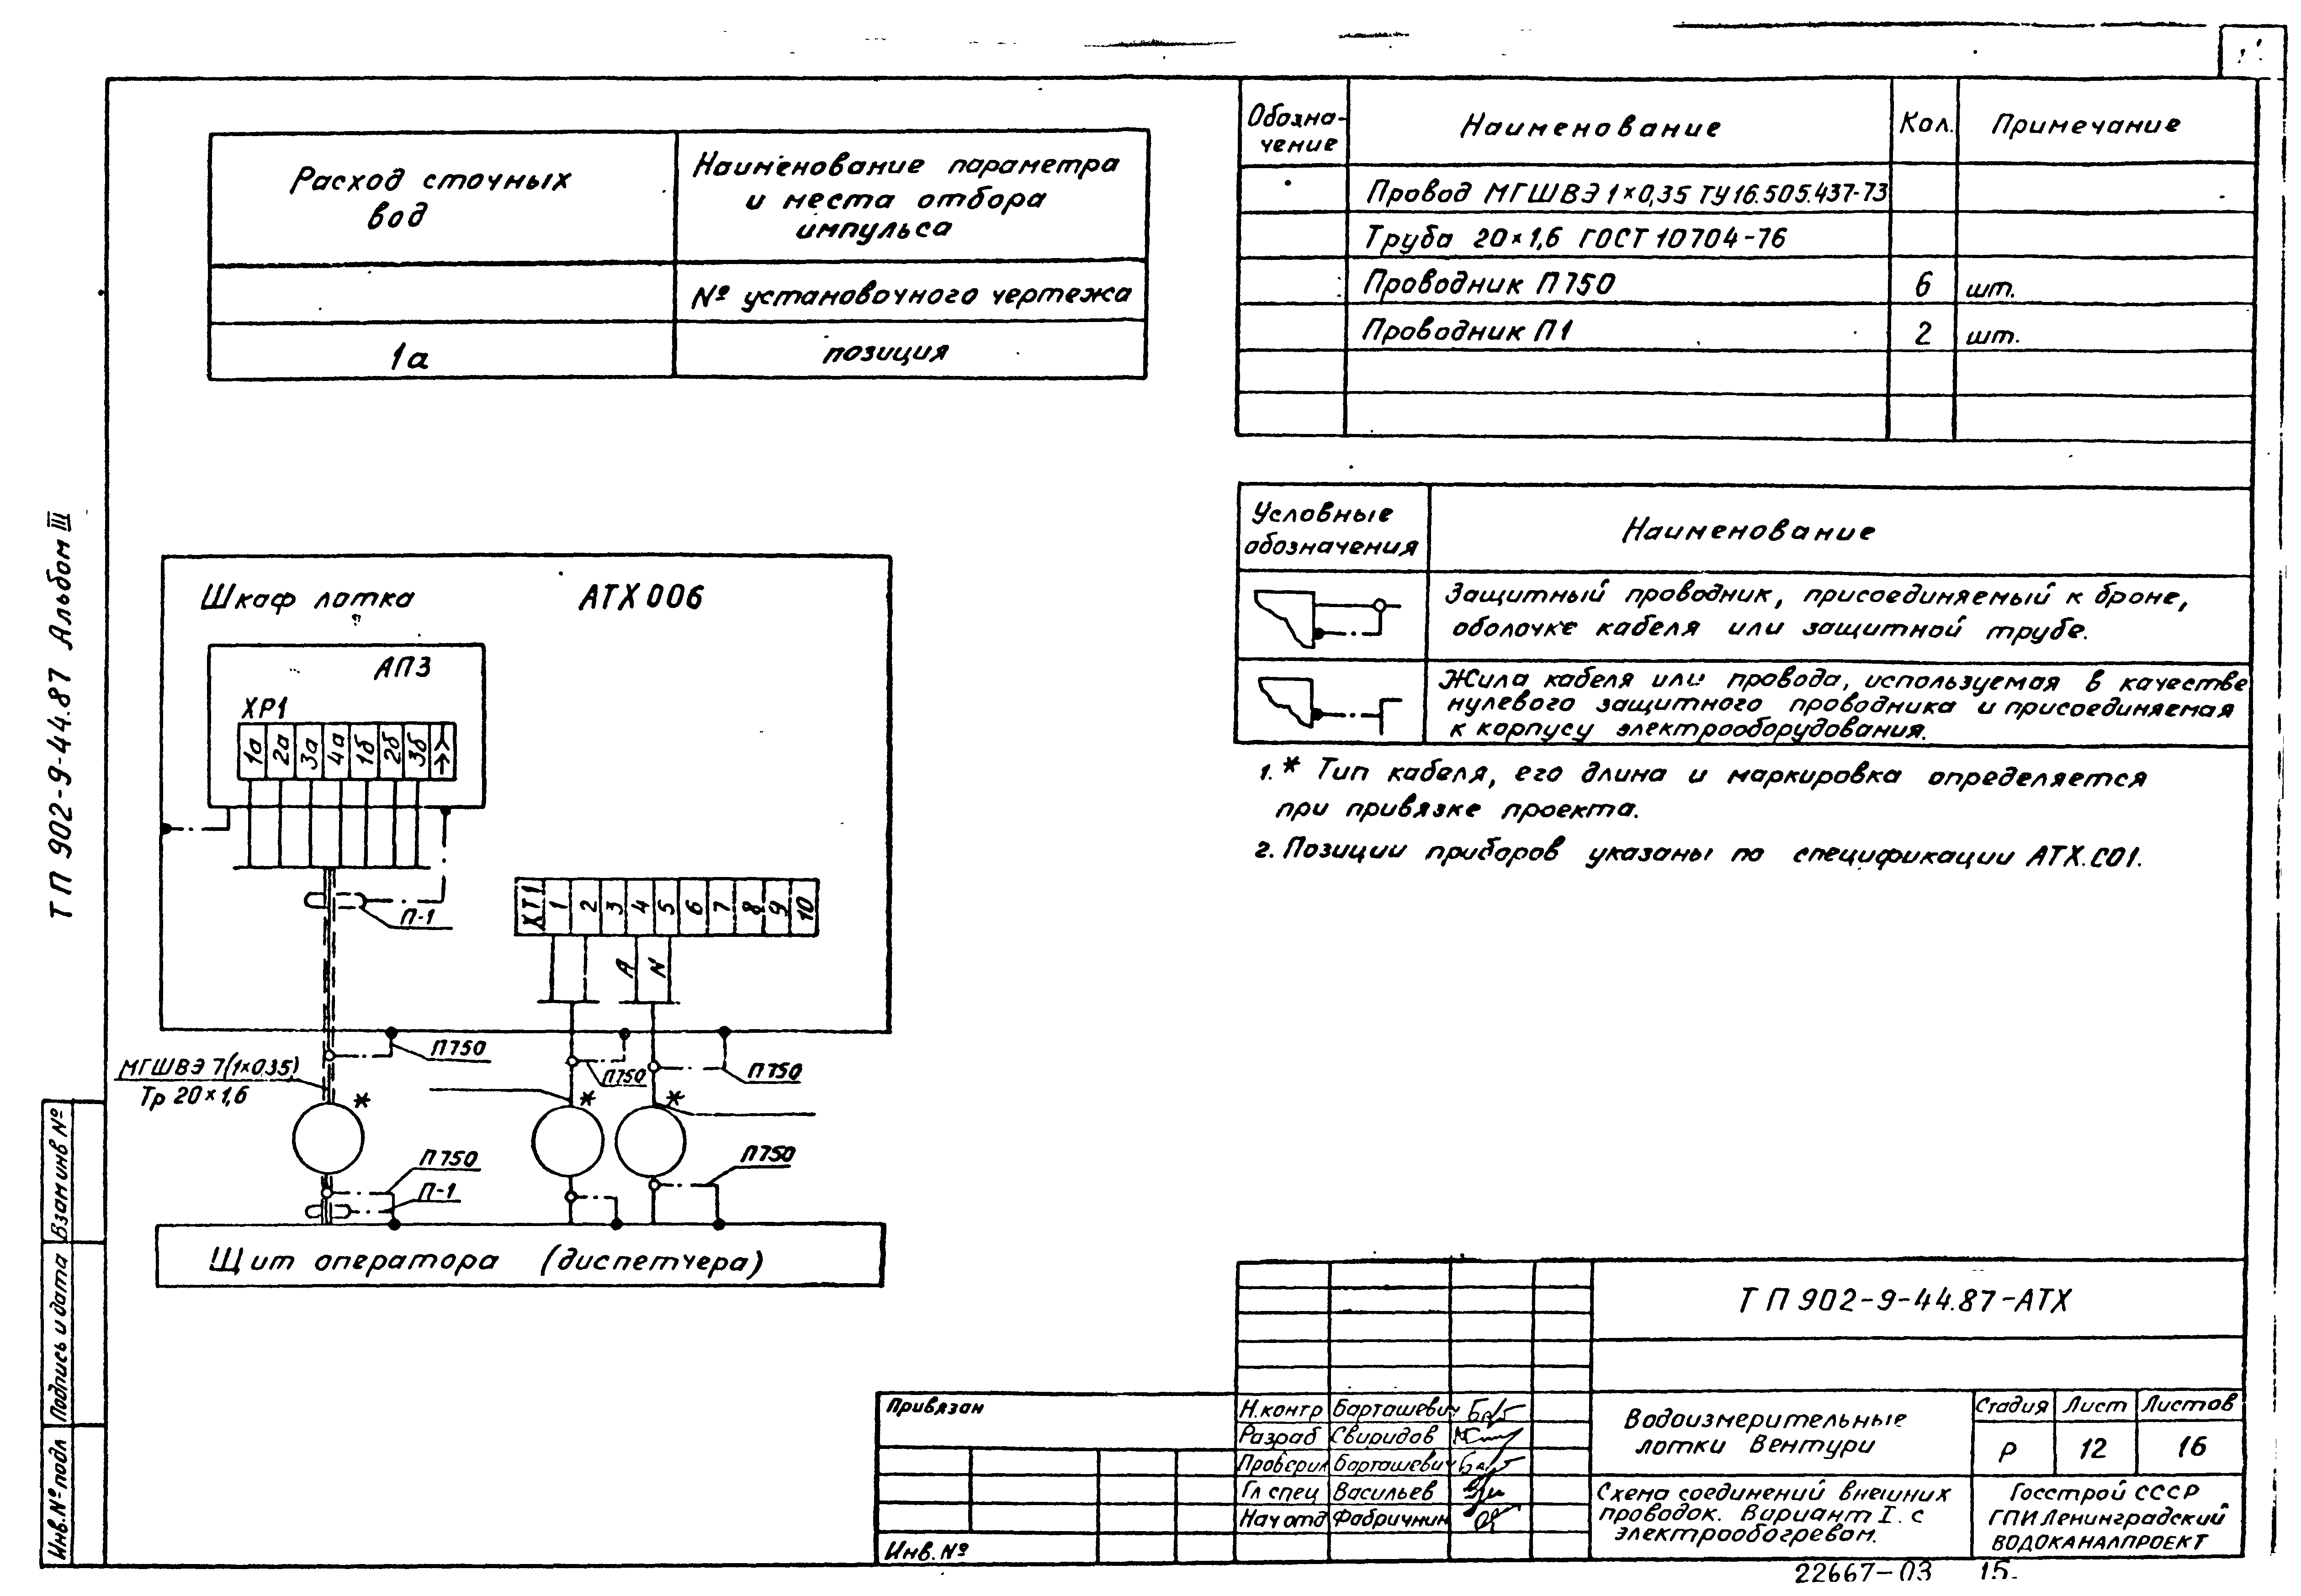 Расход сточных
вод
Наименование параметра
и места отбора
импульса
№ установочного чертежа
1а
позиция
Обозна-
чение
Наименование
Кол.
Примечание
Провод МГШВЭ 1×0,35 ТУ16.505.437-73
Труба 20×1,6 ГОСТ 10704-76
Проводник П750
6
шт.
Проводник П1
2
шт.
Условные
обозначения
Наименование
Защитный проводник, присоединяемый к броне,
оболочке кабеля или защитной трубе.
Жила кабеля или провода, используемая в качестве
нулевого защитного проводника и присоединяемая
к корпусу электрооборудования.
1. * Тип кабеля, его длина и маркировка определяется
при привязке проекта.
2. Позиции приборов указаны по спецификации АТХ.С01.
ТП 902-9-44.87 Альбом III
Шкаф лотка
АТХ006
АПЗ
ХР1
1а 2а 3а 4а 1б 2б 3б
П-1
ХТ1 1 2 3 4 5 6 7 8 9 10
А N
П750
П750
П750
МГШВЭ 7(1×0,35)
Тр 20×1,6
* * *
П750
П-1
П750
Щит оператора (диспетчера)
Взам инв №
Подпись и дата
Инв.№ подл
Привязан
Инв.№
Н.контр Барташевич
Разраб Свиридов
Проверил Барташевич
Гл спец Васильев
Нач отд Фабричнин
ТП 902-9-44.87-АТХ
Водоизмерительные
лотки Вентури
Стадия Лист Листов
Р 12 16
Схема соединений внешних
проводок. Вариант I. с
электрообогревом.
Госстрой СССР
ГПИ Ленинградский
ВОДОКАНАЛПРОЕКТ
22667-03 15.